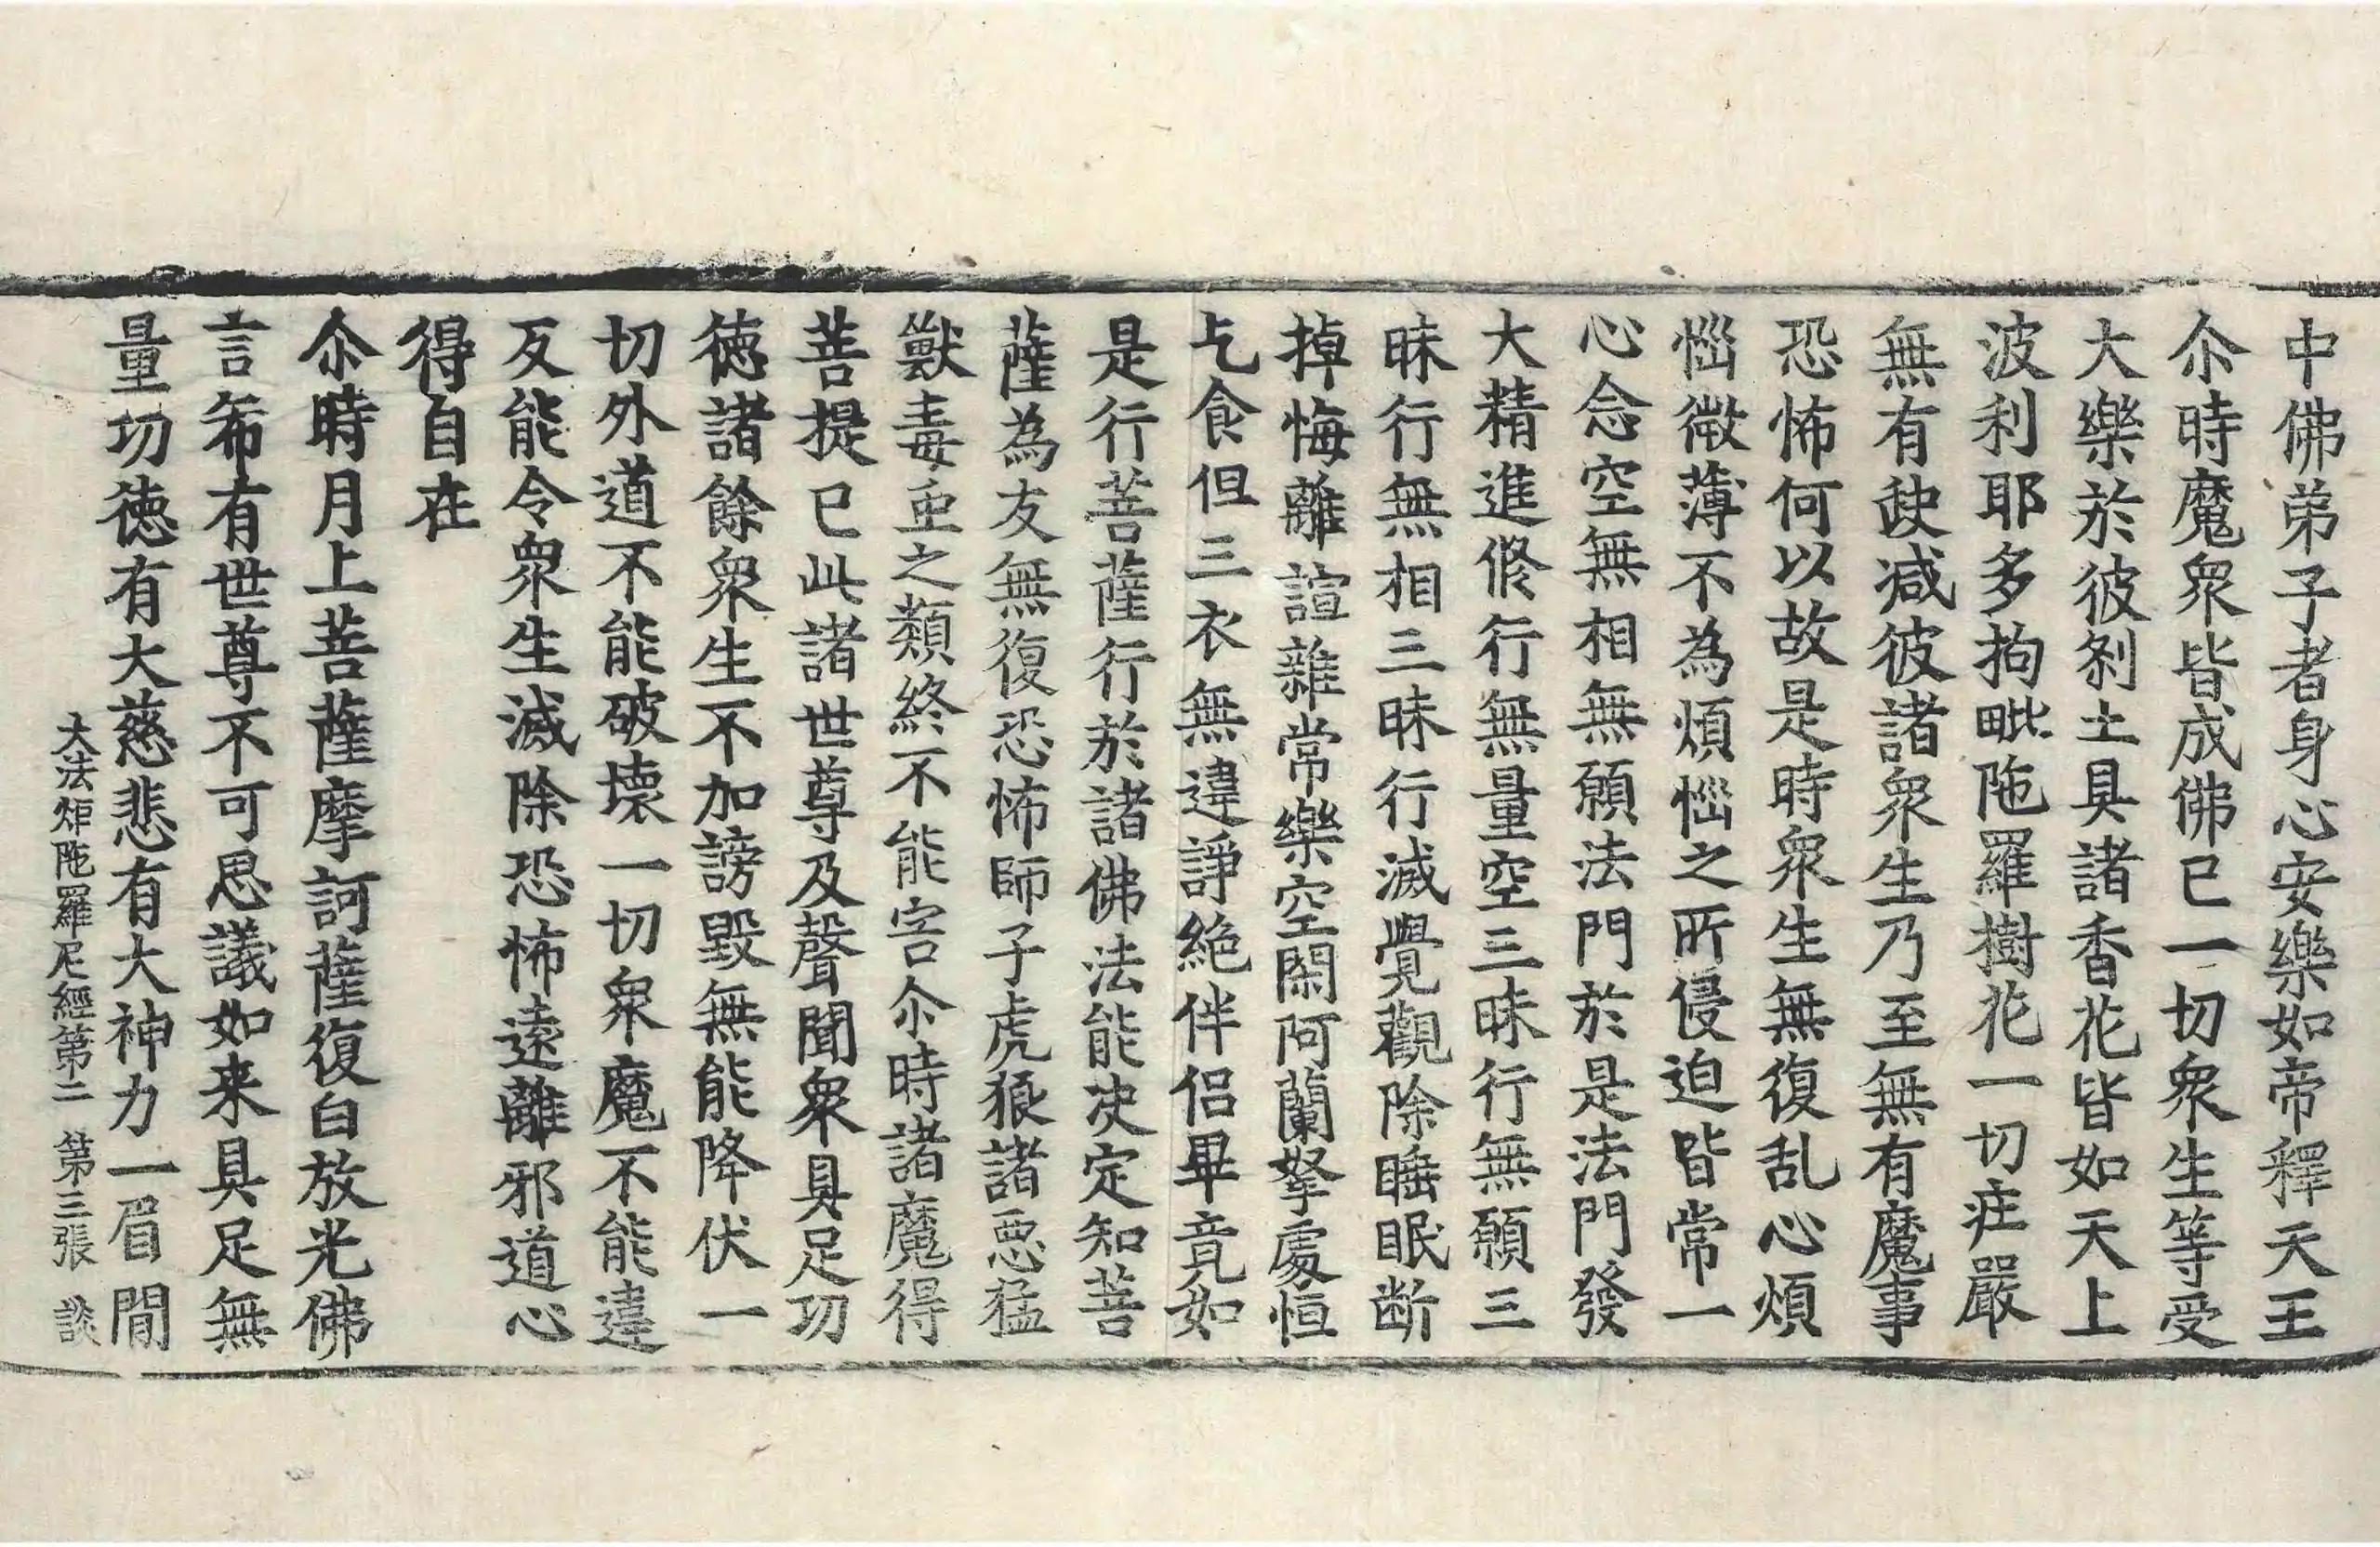 中佛弟子者身心安樂如帝釋天王
尒時魔眾皆成佛已一切眾生等受
大樂於彼刹土具諸香花皆如天上
波利耶多拘毗陁羅樹花一切疰嚴
無有缺减彼諸眾生乃至無有魔事
恐怖何以故是時眾生無復乱心煩
惱微薄不為煩惱之所侵迫皆常一
心念空無相無願法門於是法門發
大精進修行無量空三昧行無願三
昧行無相三昧行滅覺觀除睡眠断
掉悔離諠雜常樂空閑阿蘭拏處恒
乞食但三衣無違諍絶伴侣畢竟如
是行菩薩行於諸佛法能决定知菩
薩為友無復恐怖師子虎狼諸惡猛
獸毒䖝之類終不能害尒時諸魔得
菩提已此諸世尊及聲聞眾具足功
徳諸餘眾生不加謗毀無能降伏一
切外道不能破壞一切眾魔不能違
反能令眾生滅除恐怖遠離邪道心
得自在
尒時月上菩薩摩訶薩復白放光佛
言希有世尊不可思議如来具足無
量功徳有大慈悲有大神力一眉間
大法炬陁羅尼經第二 第三張 談